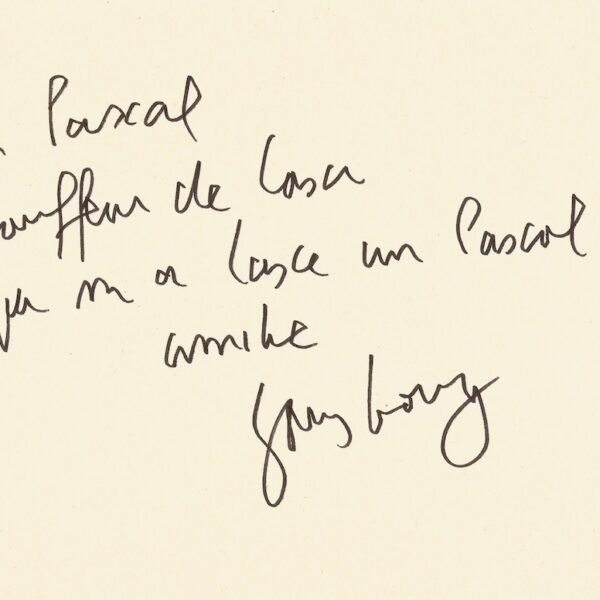 Pascal
auffeur de Casa
qui m a casse un Pascal
amitie
Gainsbourg